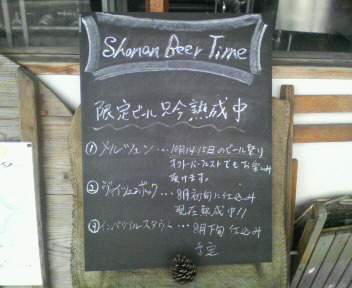 Shonan Beer Time
限定ビール只今熟成中
① メルツェン…10月14.15日のビール祭り
オクトーバーフェストでもお楽しみ
頂けます。
② ヴァイツェンボック…8月初旬に仕込み
現在熟成中!!
③ インペリアルスタウト…8月下旬 仕込み
予定